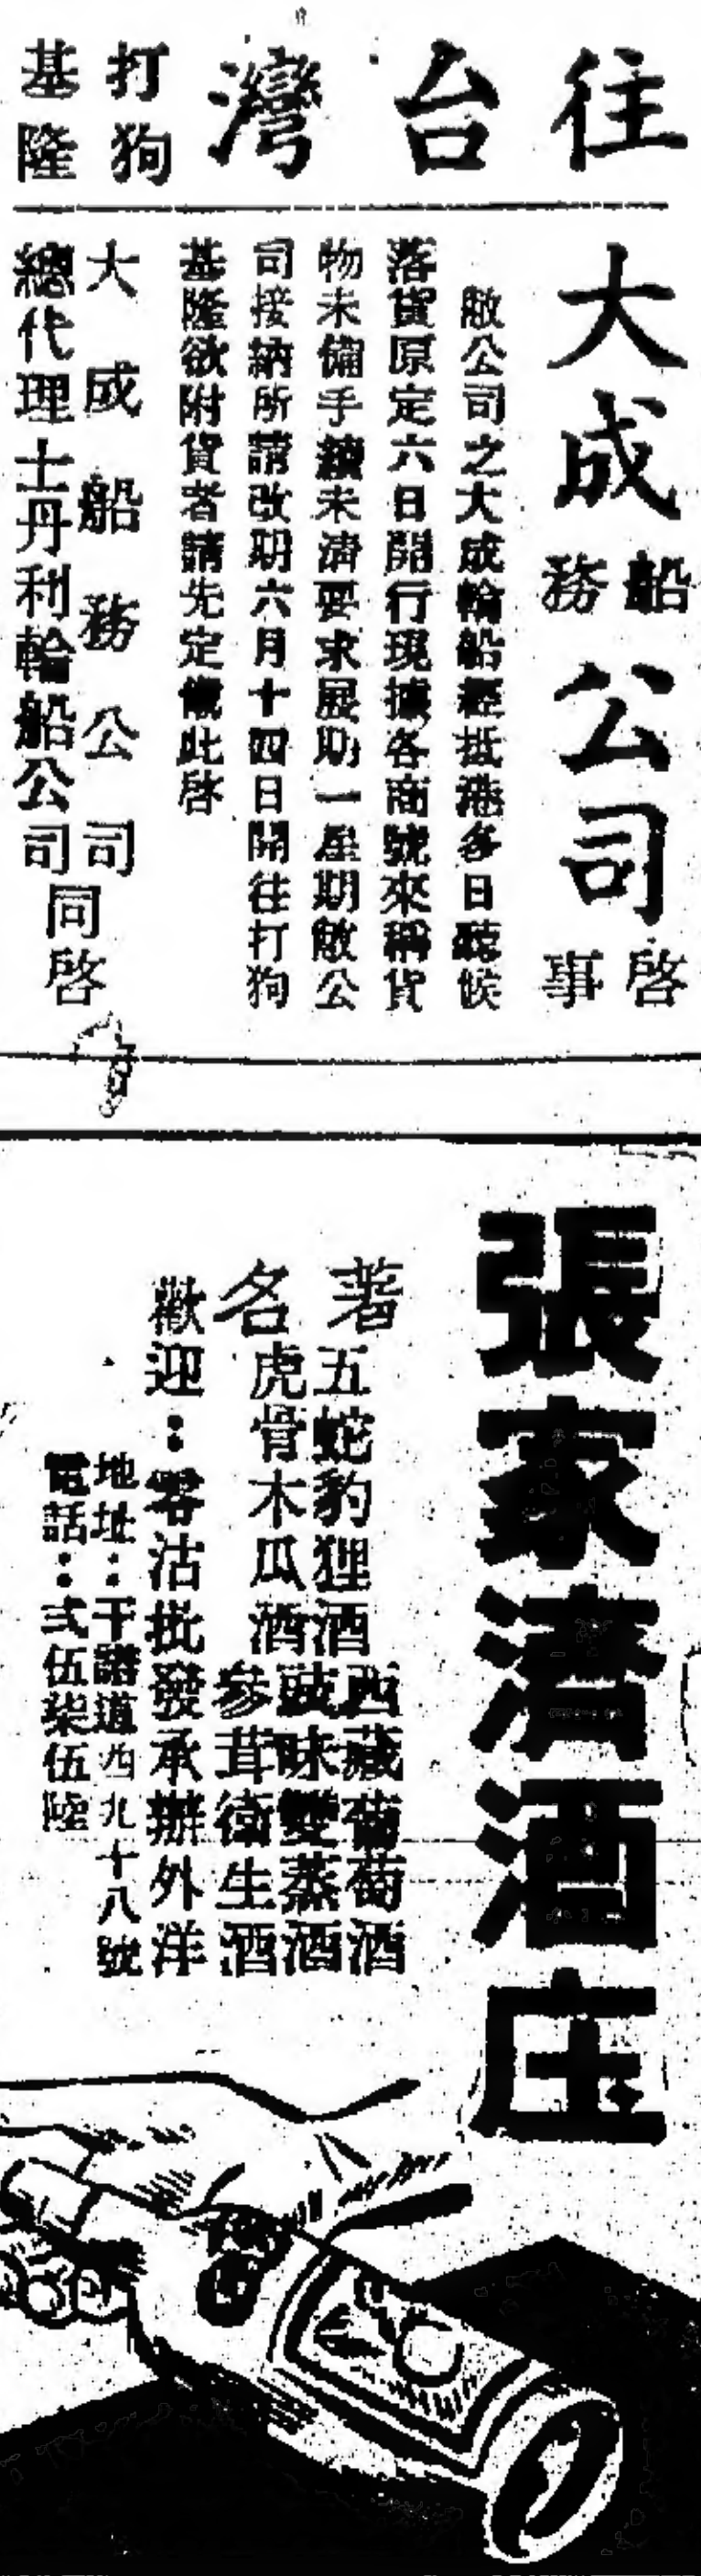 往台灣
打狗
基隆
大成船務公司啓事
敝公司之大成輪船經抵港多日聽候
落貨原定六日開行現據各商號來稱貨
物未備手續未清要求展期一星期敝公
司接納所請改期六月十四日開往打狗
基隆欲附貨者請先定儎此啓
大成船務公司
總代理士丹利輪船公司
同啓
張家濟酒庄
著名
五蛇豹狸酒
虎骨木瓜酒
西藏葡萄酒
豉味雙蒸酒
參茸衛生酒
歡迎:零沽批發承辦外洋
地址:干諾道西九十八號
電話:弍伍柒伍陸